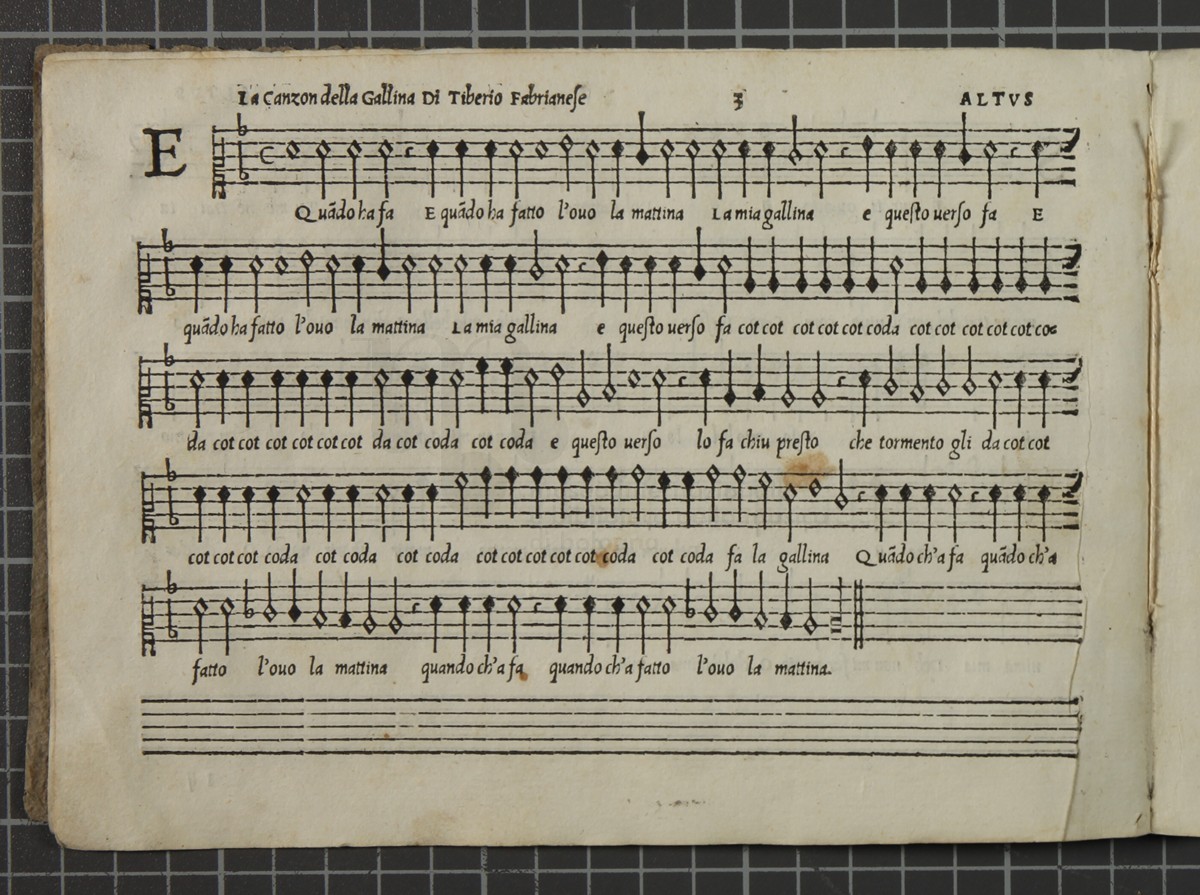 La Canzon della Gallina Di Tiberio Fabrianese 3 ALTVS
E
Quãdo ha fa E quãdo ha fatto l'ouo la mattina La mia gallina e questo uerso fa E
quãdo ha fatto l'ouo la mattina La mia gallina e questo uerso fa cot cot cot cot cot coda cot cot cot cot cot co=
da cot cot cot cot cot cot da cot coda cot coda e questo uerso lo fa chiu presto che tormento gli da cot cot
cot cot cot coda cot coda cot coda cot cot cot cot cot coda cot coda fa la gallina Quãdo ch'a fa quãdo ch'a
fatto l'ouo la mattina quando ch'a fa quando ch'a fatto l'ouo la mattina.